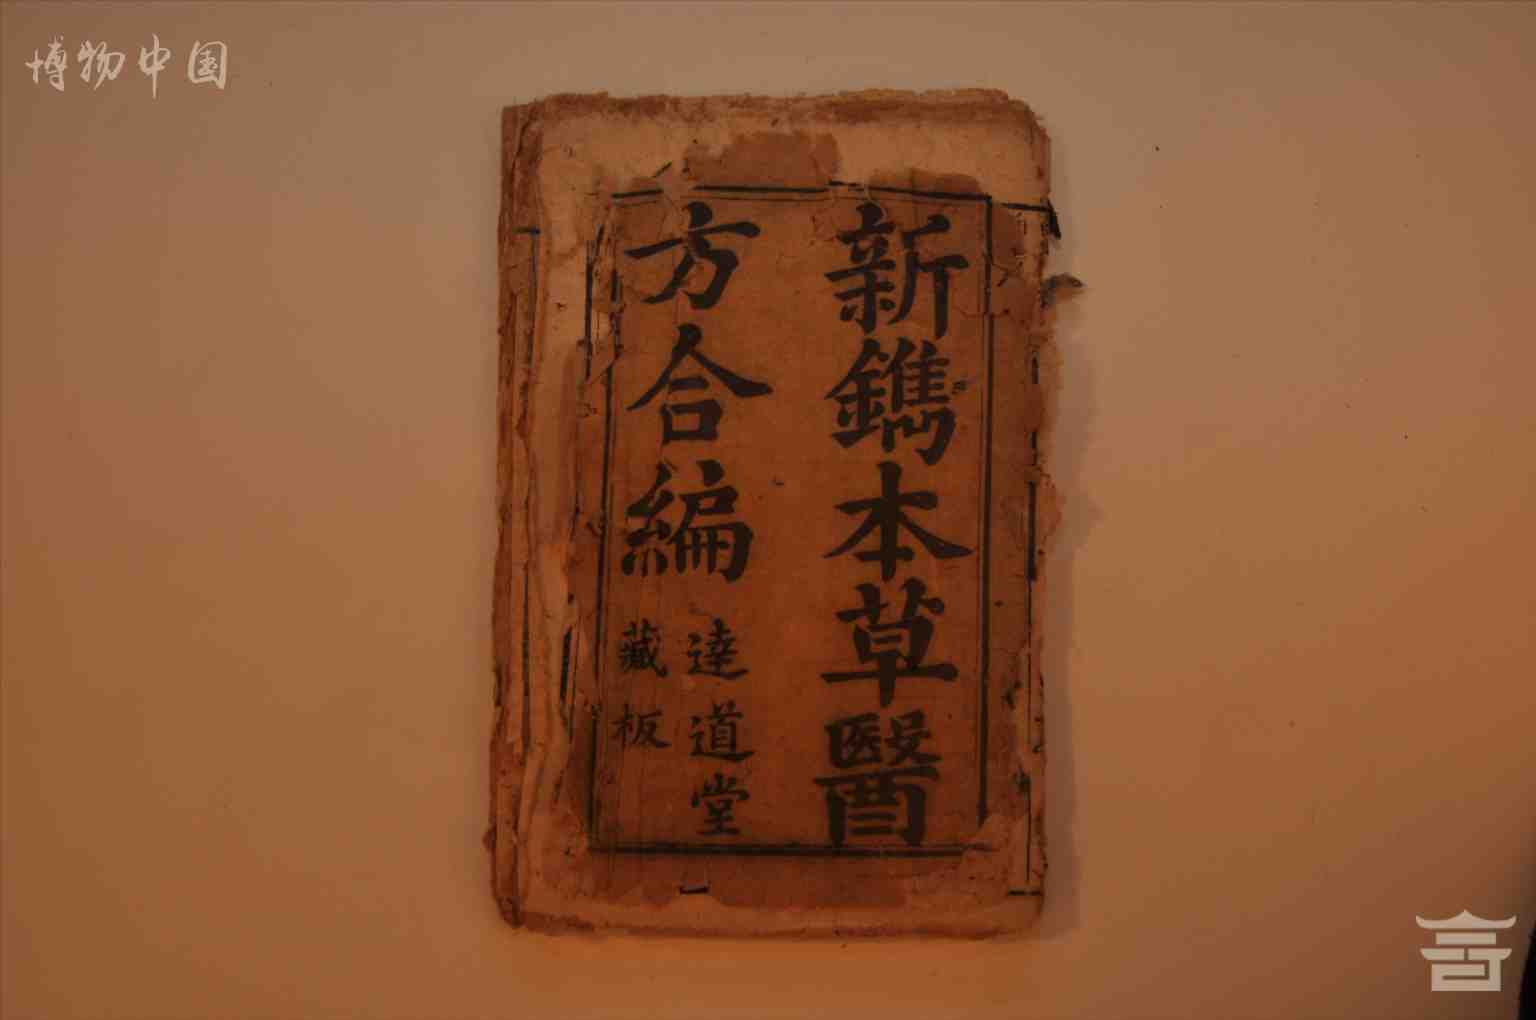 博物中国
新鐫本草醫
方合編
達道堂
藏板